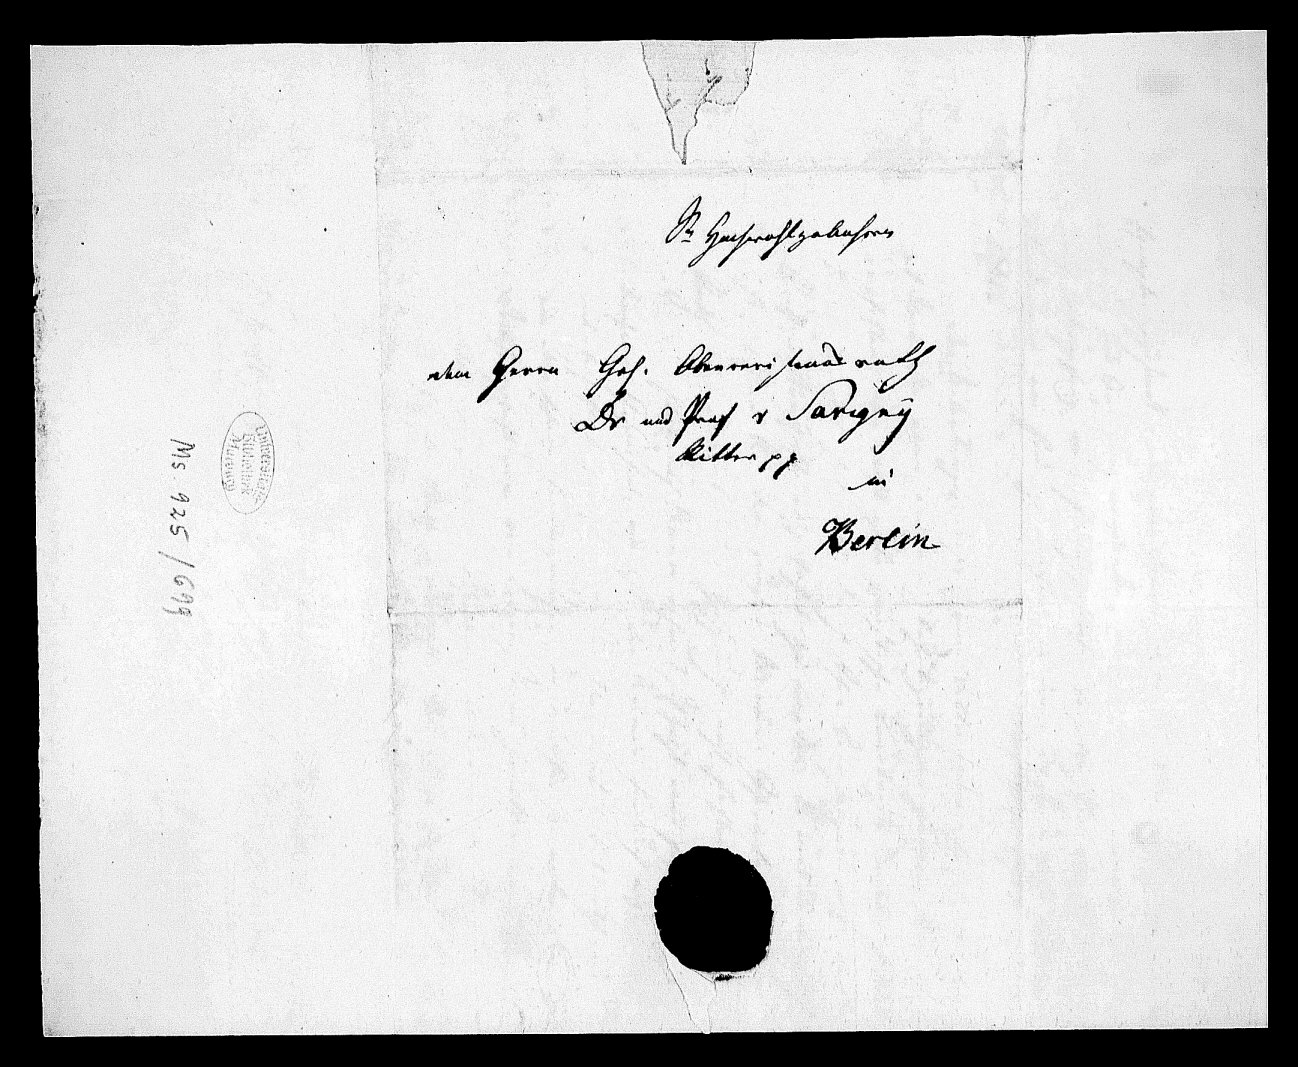 Sr Hochwohlgebohren
dem Herrn Geh. Oberrevisionsrath
Dr und Prof v Savigny
Ritter pp
in
Berlin
Universitäts
Bibliothek
Marburg
Ms. 925/699